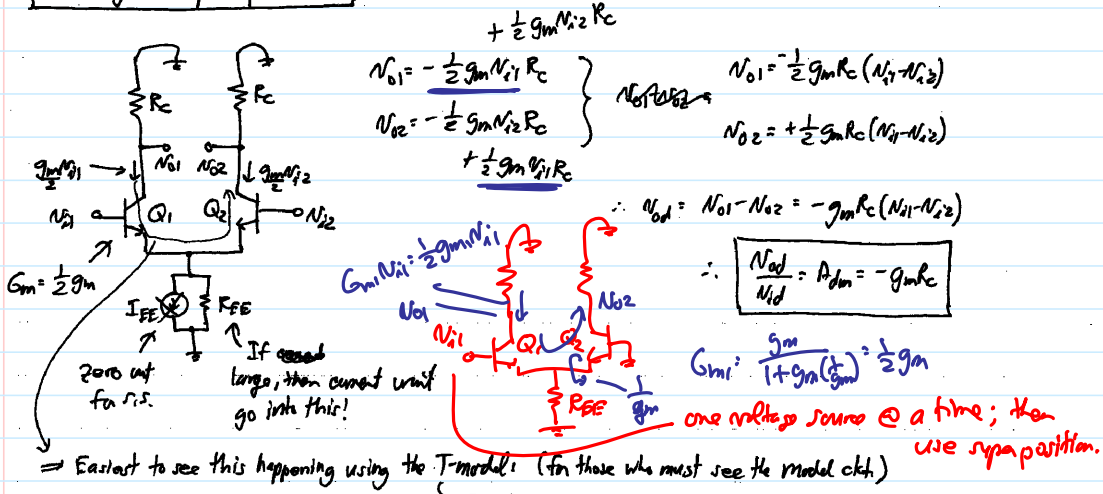 + 1/2 gm vi2 Rc
vo1 = - 1/2 gm vi1 Rc
vo2 = - 1/2 gm vi2 Rc
+ 1/2 gm vi1 Rc
vo1 = - 1/2 gm Rc (vi1 - vi2)
vo2 = + 1/2 gm Rc (vi1 - vi2)
∴ vod = vo1 - vo2 = - gm Rc (vi1 - vi2)
∴ vod/vid = Adm = - gm Rc
Rc
Rc
gm vi1/2
vo1
vo2
gm vi2/2
vi1
Q1
Q2
vi2
Gm = 1/2 gm
IEE
REE
zero out
for s.s.
If
large, then current won't
go into this!
Gm1 vi1 = 1/2 gm1 vi1
vo1
vo2
vi1
Q1
Q2
REE
1/gm
Gm1 = gm / (1 + gm (1/gm)) = 1/2 gm
one voltage source @ a time; then
use superposition.
⇒ Easiest to see this happening using the T-model: (for those who must see the model ckt.)